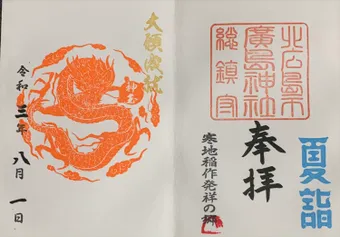 夏詣
北広島市
廣島神社
総鎮守
奉拝
寒地稲作発祥の郷
大願成就
令和三年八月一日